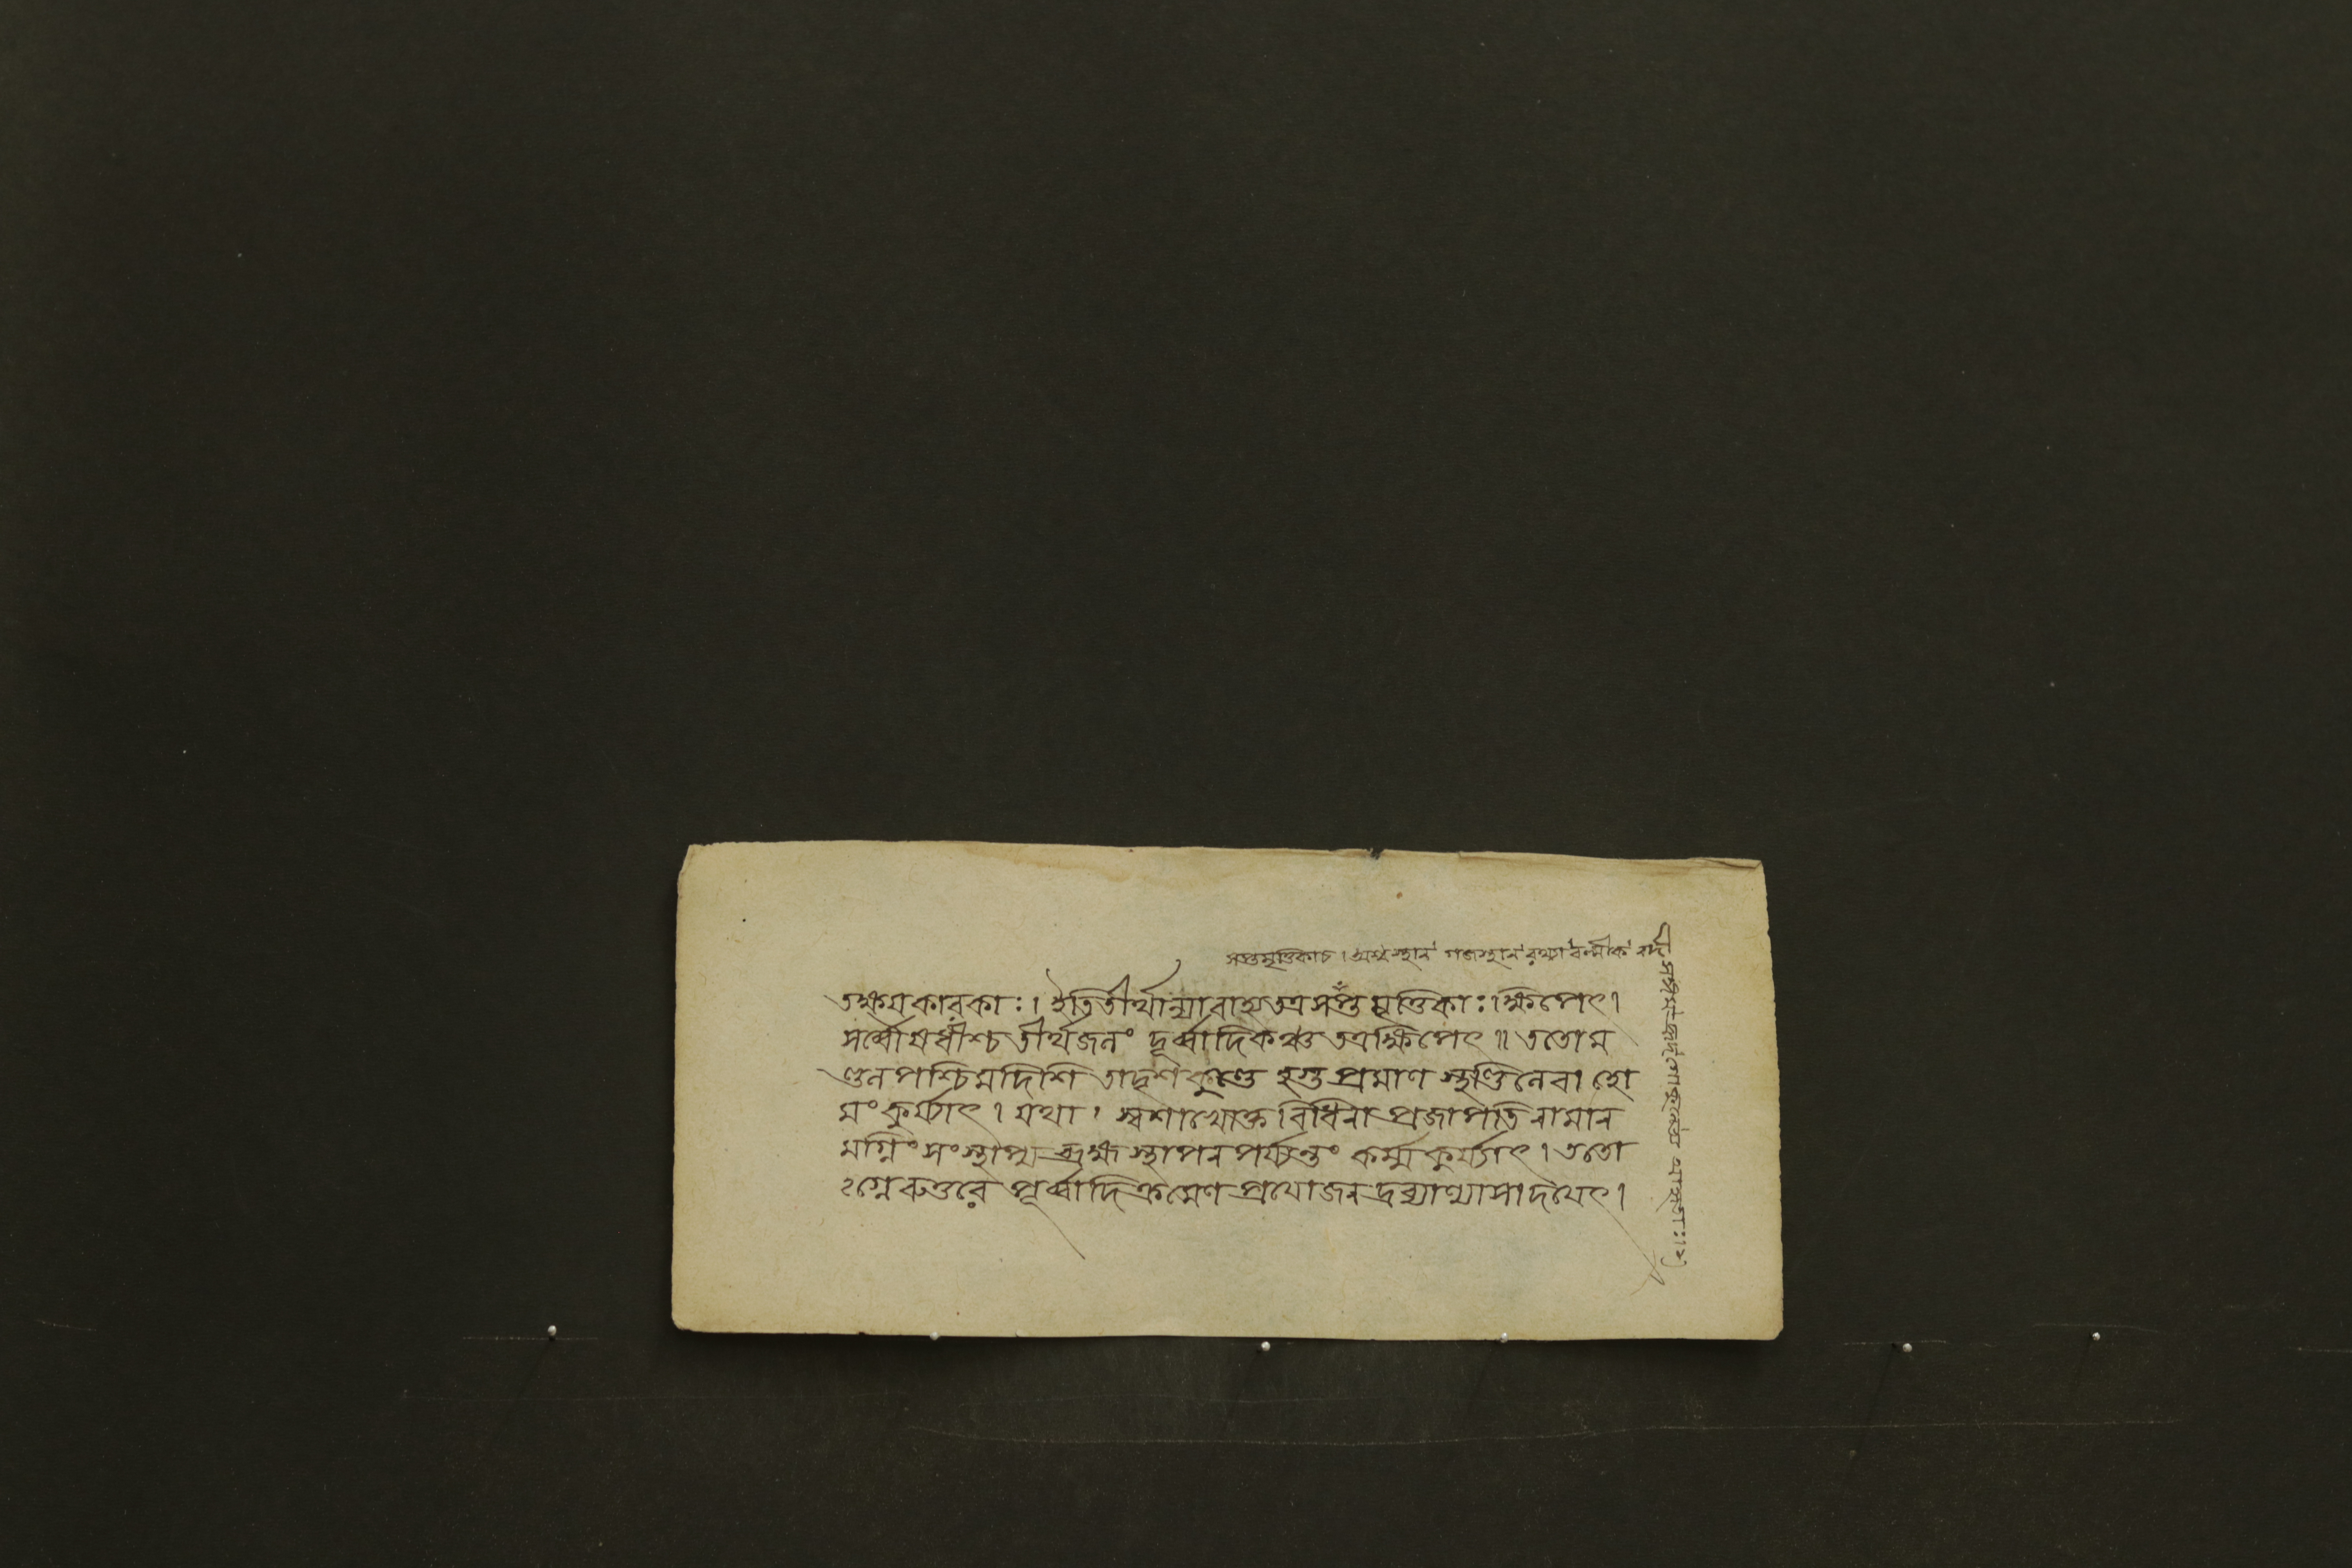 সপ্তমৃত্তিকাচ। অশ্বস্থান গজস্থান রথ্যা বল্মীক নদী
তক্ষয়কারকাঃ। ইতি তীর্থান্যাবাহ্য তত্র সপ্ত মৃত্তিকাঃ ক্ষিপেৎ।
সর্ব্বৌষধীশ্চ তীর্থজলং দূর্ব্বাদিকঞ্চ তত্র ক্ষিপেৎ॥ ততো ম
ণ্ডলপশ্চিমদিশি তাদৃশ কুণ্ডে হস্ত প্রমাণ স্থণ্ডিলেবা হো
মং কুর্য্যাৎ। যথা। স্বশাখোক্ত বিধিনা প্রজাপতি নামান
মগ্নিং সংস্থাপ্য ব্রহ্ম স্থাপন পর্য্যন্তং কর্ম্ম কুর্য্যাৎ। ততো
ঽগ্নেরুত্তরে পূর্ব্বাদি ক্রমেণ প্রযোজন দ্রব্যাণ্যাসাদযেৎ।